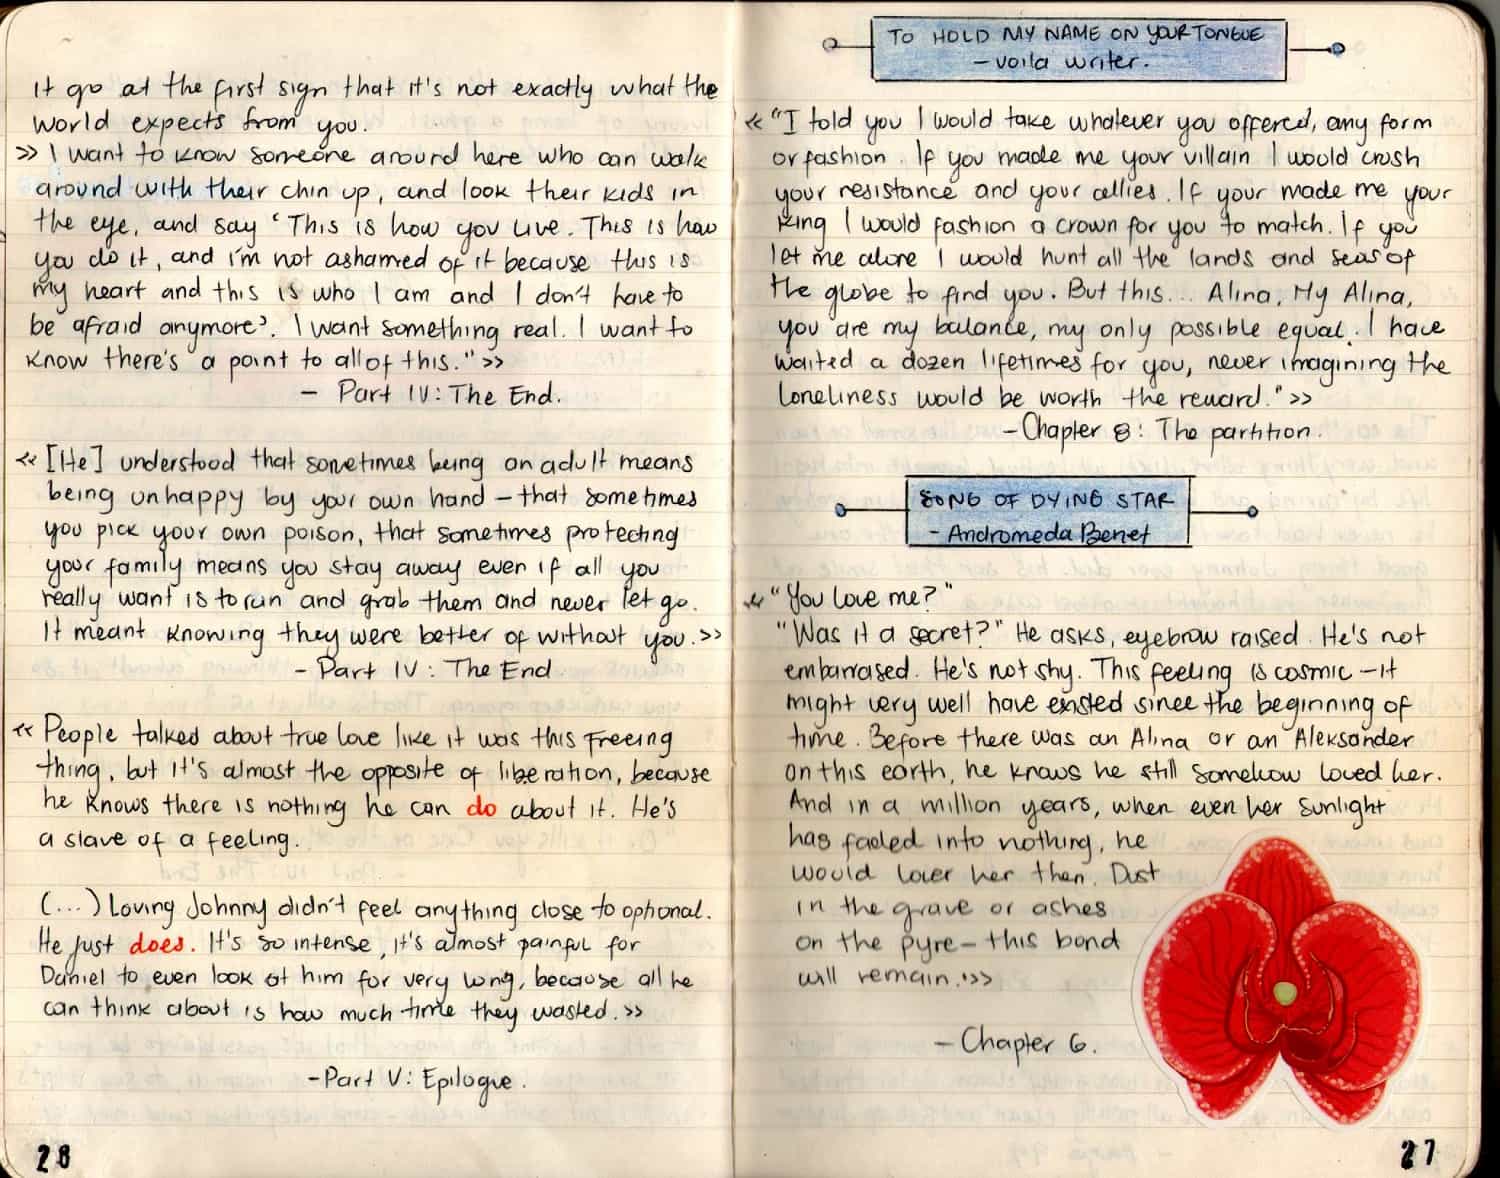 it go at the first sign that it's not exactly what the
world expects from you.
>> I want to know someone around here who can walk
around with their chin up, and look their kids in
the eye, and say 'This is how you live. This is how
you do it, and i'm not ashamed of it because this is
my heart and this is who I am and I don't have to
be afraid anymore'. I want something real. I want to
know there's a point to all of this." >>
- Part IV: The End.
<< [He] understood that sometimes being an adult means
being unhappy by your own hand - that sometimes
you pick your own poison, that sometimes protecting
your family means you stay away even if all you
really want is to run and grab them and never let go.
It meant knowing they were better of without you. >>
- Part IV: The End
<< People talked about true love like it was this freeing
thing, but it's almost the opposite of liberation, because
he knows there is nothing he can do about it. He's
a slave of a feeling.
(...) Loving Johnny didn't feel anything close to optional.
He just does. It's so intense, it's almost painful for
Daniel to even look at him for very long, because all he
can think about is how much time they wasted. >>
- Part V: Epilogue.
28
TO HOLD MY NAME ON YOUR TONGUE
- voila writer.
<< "I told you I would take whatever you offered, any form
or fashion. If you made me your villain I would crush
your resistance and your allies. If your made me your
king I would fashion a crown for you to match. If you
let me alone I would hunt all the lands and seas of
the globe to find you. But this... Alina, My Alina,
you are my balance, my only possible equal. I have
waited a dozen lifetimes for you, never imagining the
loneliness would be worth the reward." >>
- Chapter 8: The partition.
SONG OF DYING STAR
- Andromeda Benet
<< "You love me?"
"Was it a secret?" He asks, eyebrow raised. He's not
embarrased. He's not shy. This feeling is cosmic - it
might very well have existed since the beginning of
time. Before there was an Alina or an Aleksander
on this earth, he knows he still somehow loved her.
And in a million years, when even her sunlight
has faded into nothing, he
would lover her then. Dust
in the grave or ashes
on the pyre - this bond
will remain. >>
- Chapter 6.
27